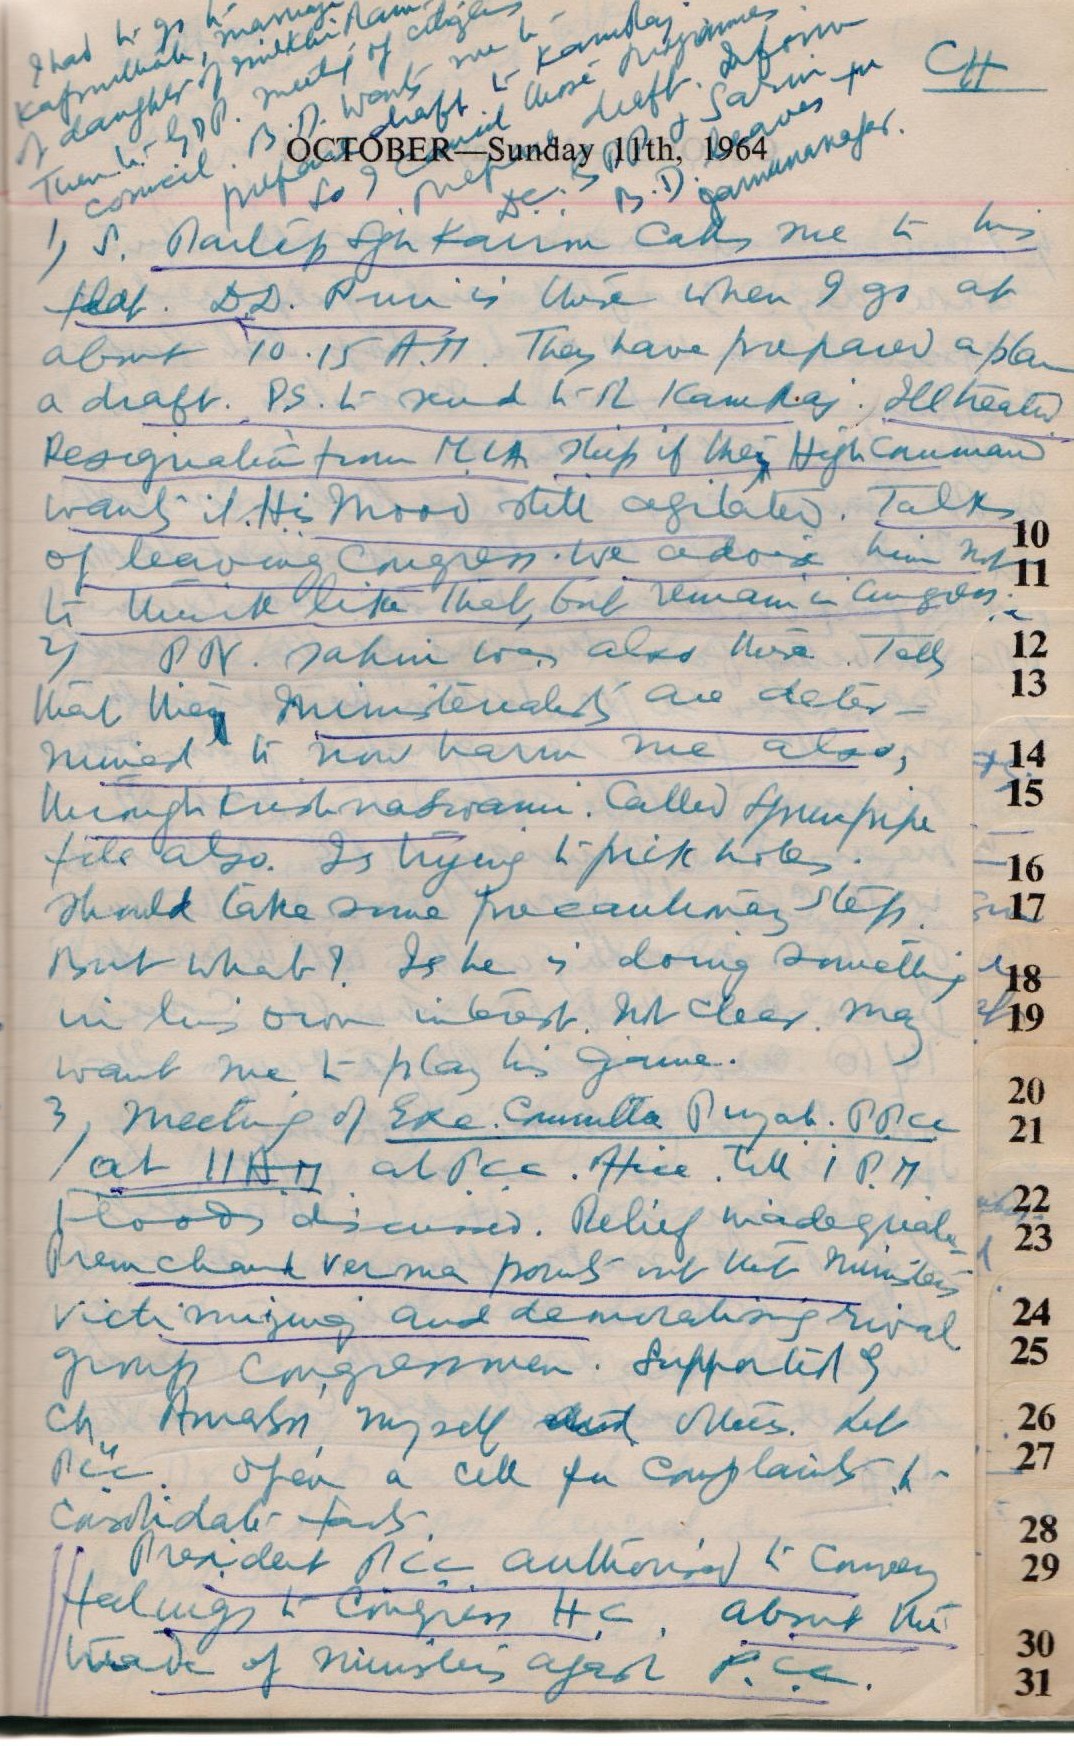 I had to go to
Kapurthala, marriage
of daughter of Milkhi Ram
Then to G.D.P. meeting of citizens
council. B.D. wants me to
prepare draft to Kamraj.
So I cancel those programmes
prepare draft. Inform
D.C. & P.P. & Sahni for
B.D. leaves
Jamnanagar.
CH
OCTOBER—Sunday 11th, 1964
1, S. Partap Sgh Kairon calls me to his
flat. D.D. Puri is there when I go at
about 10.15 A.M. They have prepared a plan
a draft. P.S. to send to Sh Kamraj.
Resignation from M.L.A. ship if the High Command
wants it. His mood still agitated. Talks
of leaving Congress. We advise him not
to think like that, but remain in Congress.
2) P.N. Sahni was also there. Tells
that the Ministerialists are deter-
mined to now harm me also,
through Krishnaswami. Called Spunpipe
file also. Is trying to pick holes.
Should take some precautionary steps.
But what? Is he is doing something
in his own interest. Not clear. May
want me to play his game.
3, Meeting of Exe. Committee Punjab. P.P.C.C
at 11 A.M at P.C.C. Office. Till 1 P.M
Floods discussed. Relief inadequate
Prem chand Verma points out that Ministers
victimizing and demoralising rival
group Congressmen. Supported by
Ch. myself and others. Let
P.C.C. open a cell for complaints to
consolidate facts.
President P.C.C authorised to convey
feelings to Congress H.C. about the
tirade of Ministers agast P.C.C.
10
11
12
13
14
15
16
17
18
19
20
21
22
23
24
25
26
27
28
29
30
31